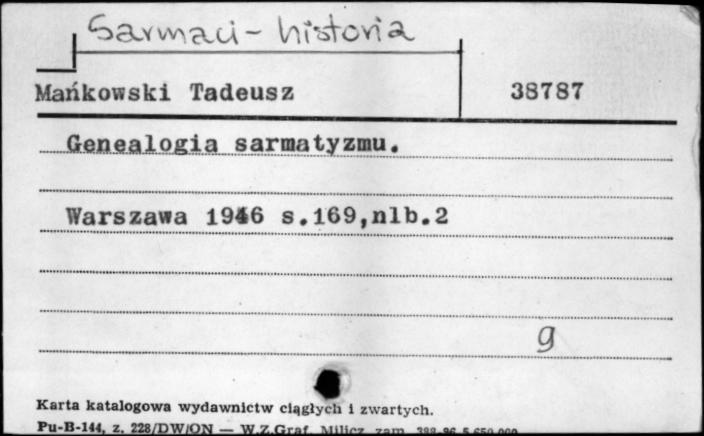 Sarmaci - historia
Mańkowski Tadeusz 38787
Genealogia sarmatyzmu.
Warszawa 1946 s.169,nlb.2
g
Karta katalogowa wydawnictw ciągłych i zwartych.
Pu-B-144, z. 228/DW/ON — W.Z.Graf. Milicz zam.